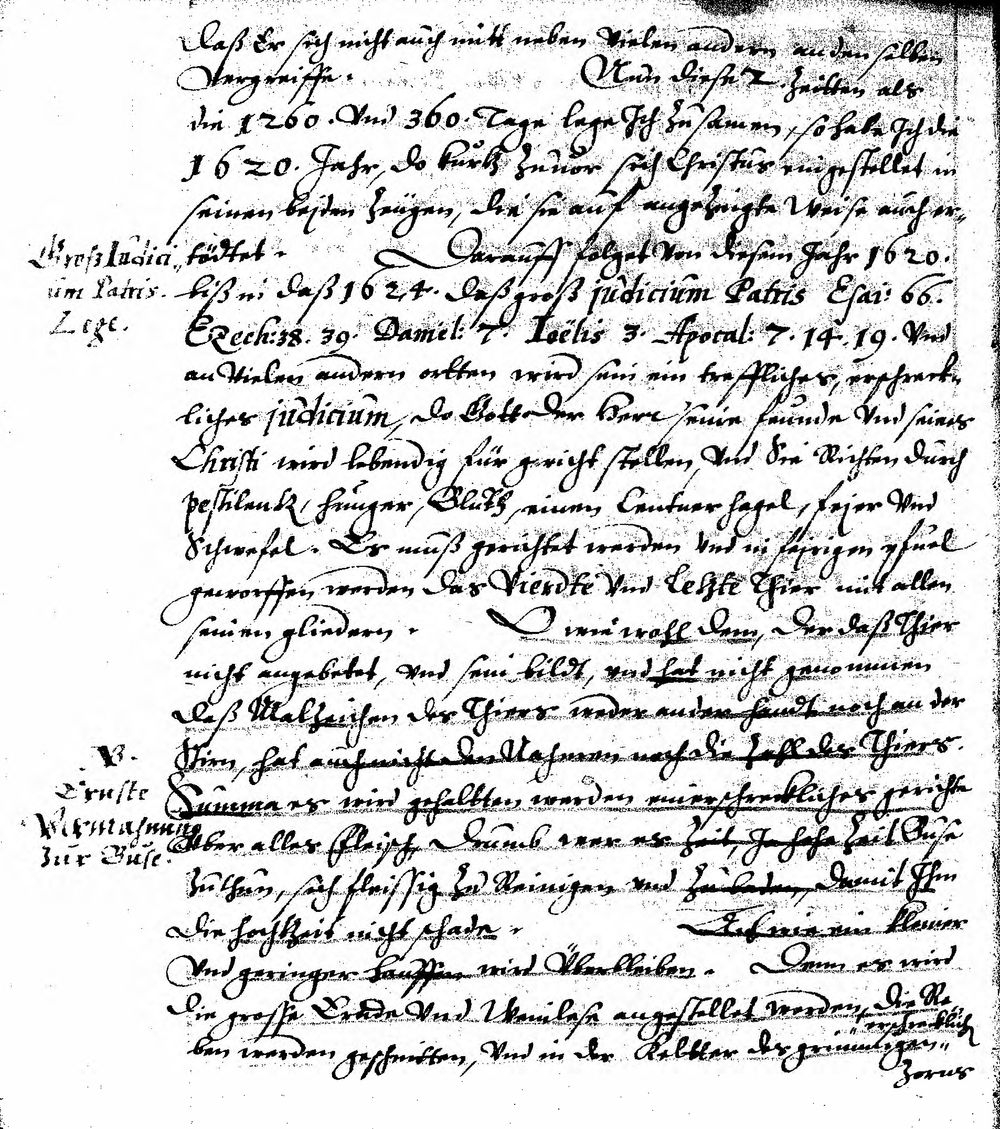 daß Er sich nicht auch mitt neben Vielen andern an den selben
Vergreiffe. Nun diese 2. Zeitten als
die 1260. Vnd 360. Tage lege Ich Zusamen, so habe Ich die
1620. Jahr, do kurtz Zuuor sich Christus eingestellet in
seinen besten Zeügen, die sie auf angeZeigte Weise auch er„
Groß Iudici„
um Patris.
Lege.
tödtet. Darauff folget Von diesem Jahr 1620.
biß in daß 1624. daß groß judicium Patris Esai: 66.
Ezech: 38. 39. Daniel: 7. Ioëlis 3. Apocal: 7. 14. 19. Vnd
an Vielen andern ortten wird sein ein treffliches, erschreck„
liches judicium, do Gott der Herr seine feinde Vnd seines
Christi wird lebendig für gericht stellen, Vnd Sie Richten durch
pestilentz, hunger, Blutt, einen Centner hagel, feuer Vnd
Schwefel. Es muß gerichtet werden vnd in feurigen pfuel
geworffen werden das Vierdte Vnd Letzte Thier mit allen
seinen gliedern. O wie wohl dem, der daß Thier
nicht angebetet, vnd sein bildt, vnd hat nicht genommen
daß Malzeichen des Thiers weder an der handt noch an der
Stirn, hat auch nicht den Nahmen noch die Zahl des Thiers.
V.
Ernste
Vermahnung
zur Buse.
Summa es wird gehaltten werden ein erschreckliches gerichte
Vber alles fleisch, Drumb wer es Zeit, Ja hohe Zeit Buse
Zuthun, sich fleissig Zu Reinigen vnd Zu baden, damit Ihm
die hochZeit nicht schade. Ach wie ein kleiner
Vnd geringer hauffen wird Überbleiben. Denn es wird
die grosse Erndte Vnd Weinlese angestellet werden, die Re„
ben werden geschnitten, Vnd in der Keltter des grimmigen„
erschrecklich
Zorns